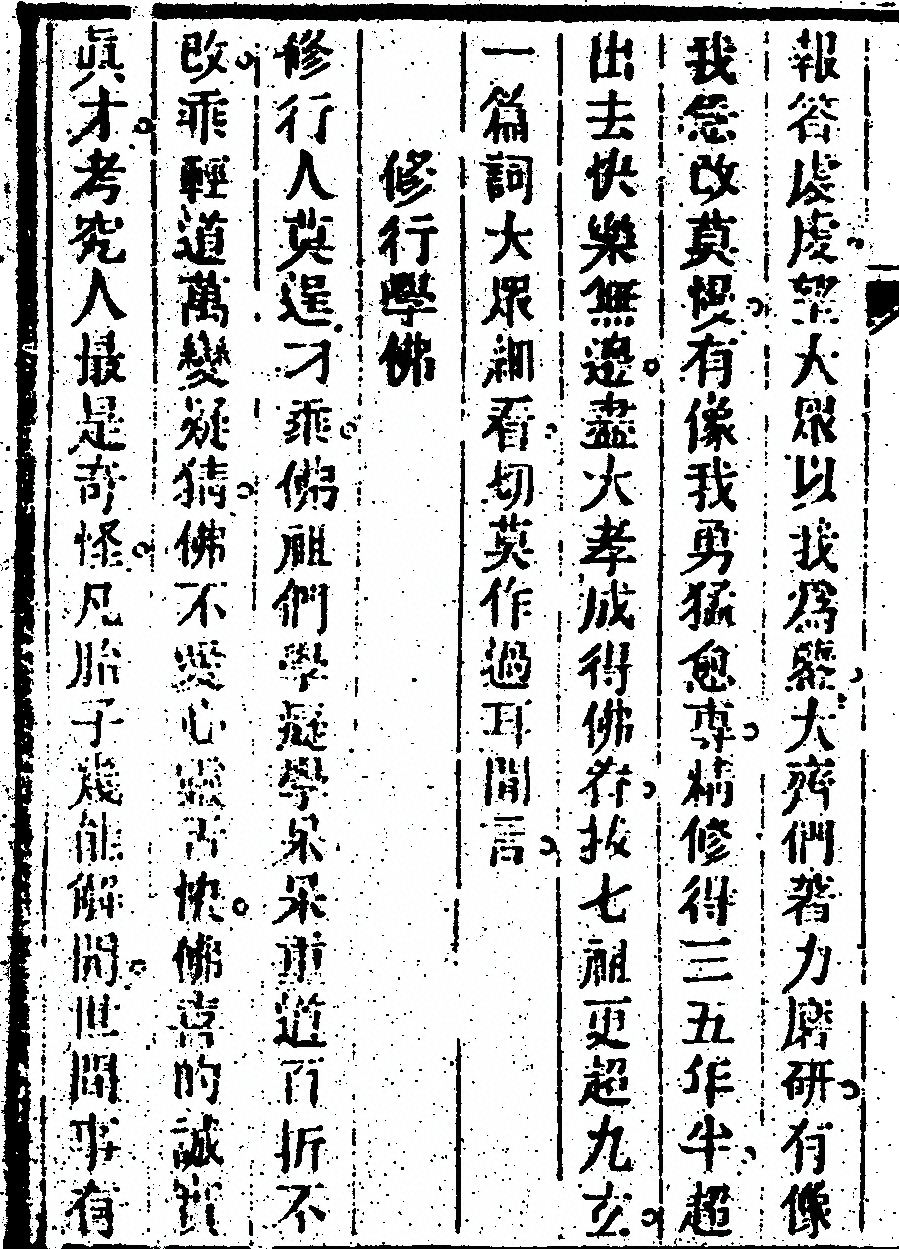 報答處處望大眾以我為鑒大齊們着力磨研有像
我急改莫慢有像我勇猛愈專精修得三五年半超
出去快樂無邊盡大孝成得佛存拔七祖更超九玄
一篇詞大眾細看切莫作過耳閒言
修行學佛
修行人莫逞刁乖佛祖們學癡學呆呆重道百折不
改乖輕道萬變疑猜佛不愛心靈舌快佛喜的誠實
真才考究人最是奇怪凡胎子幾能解開世間事有